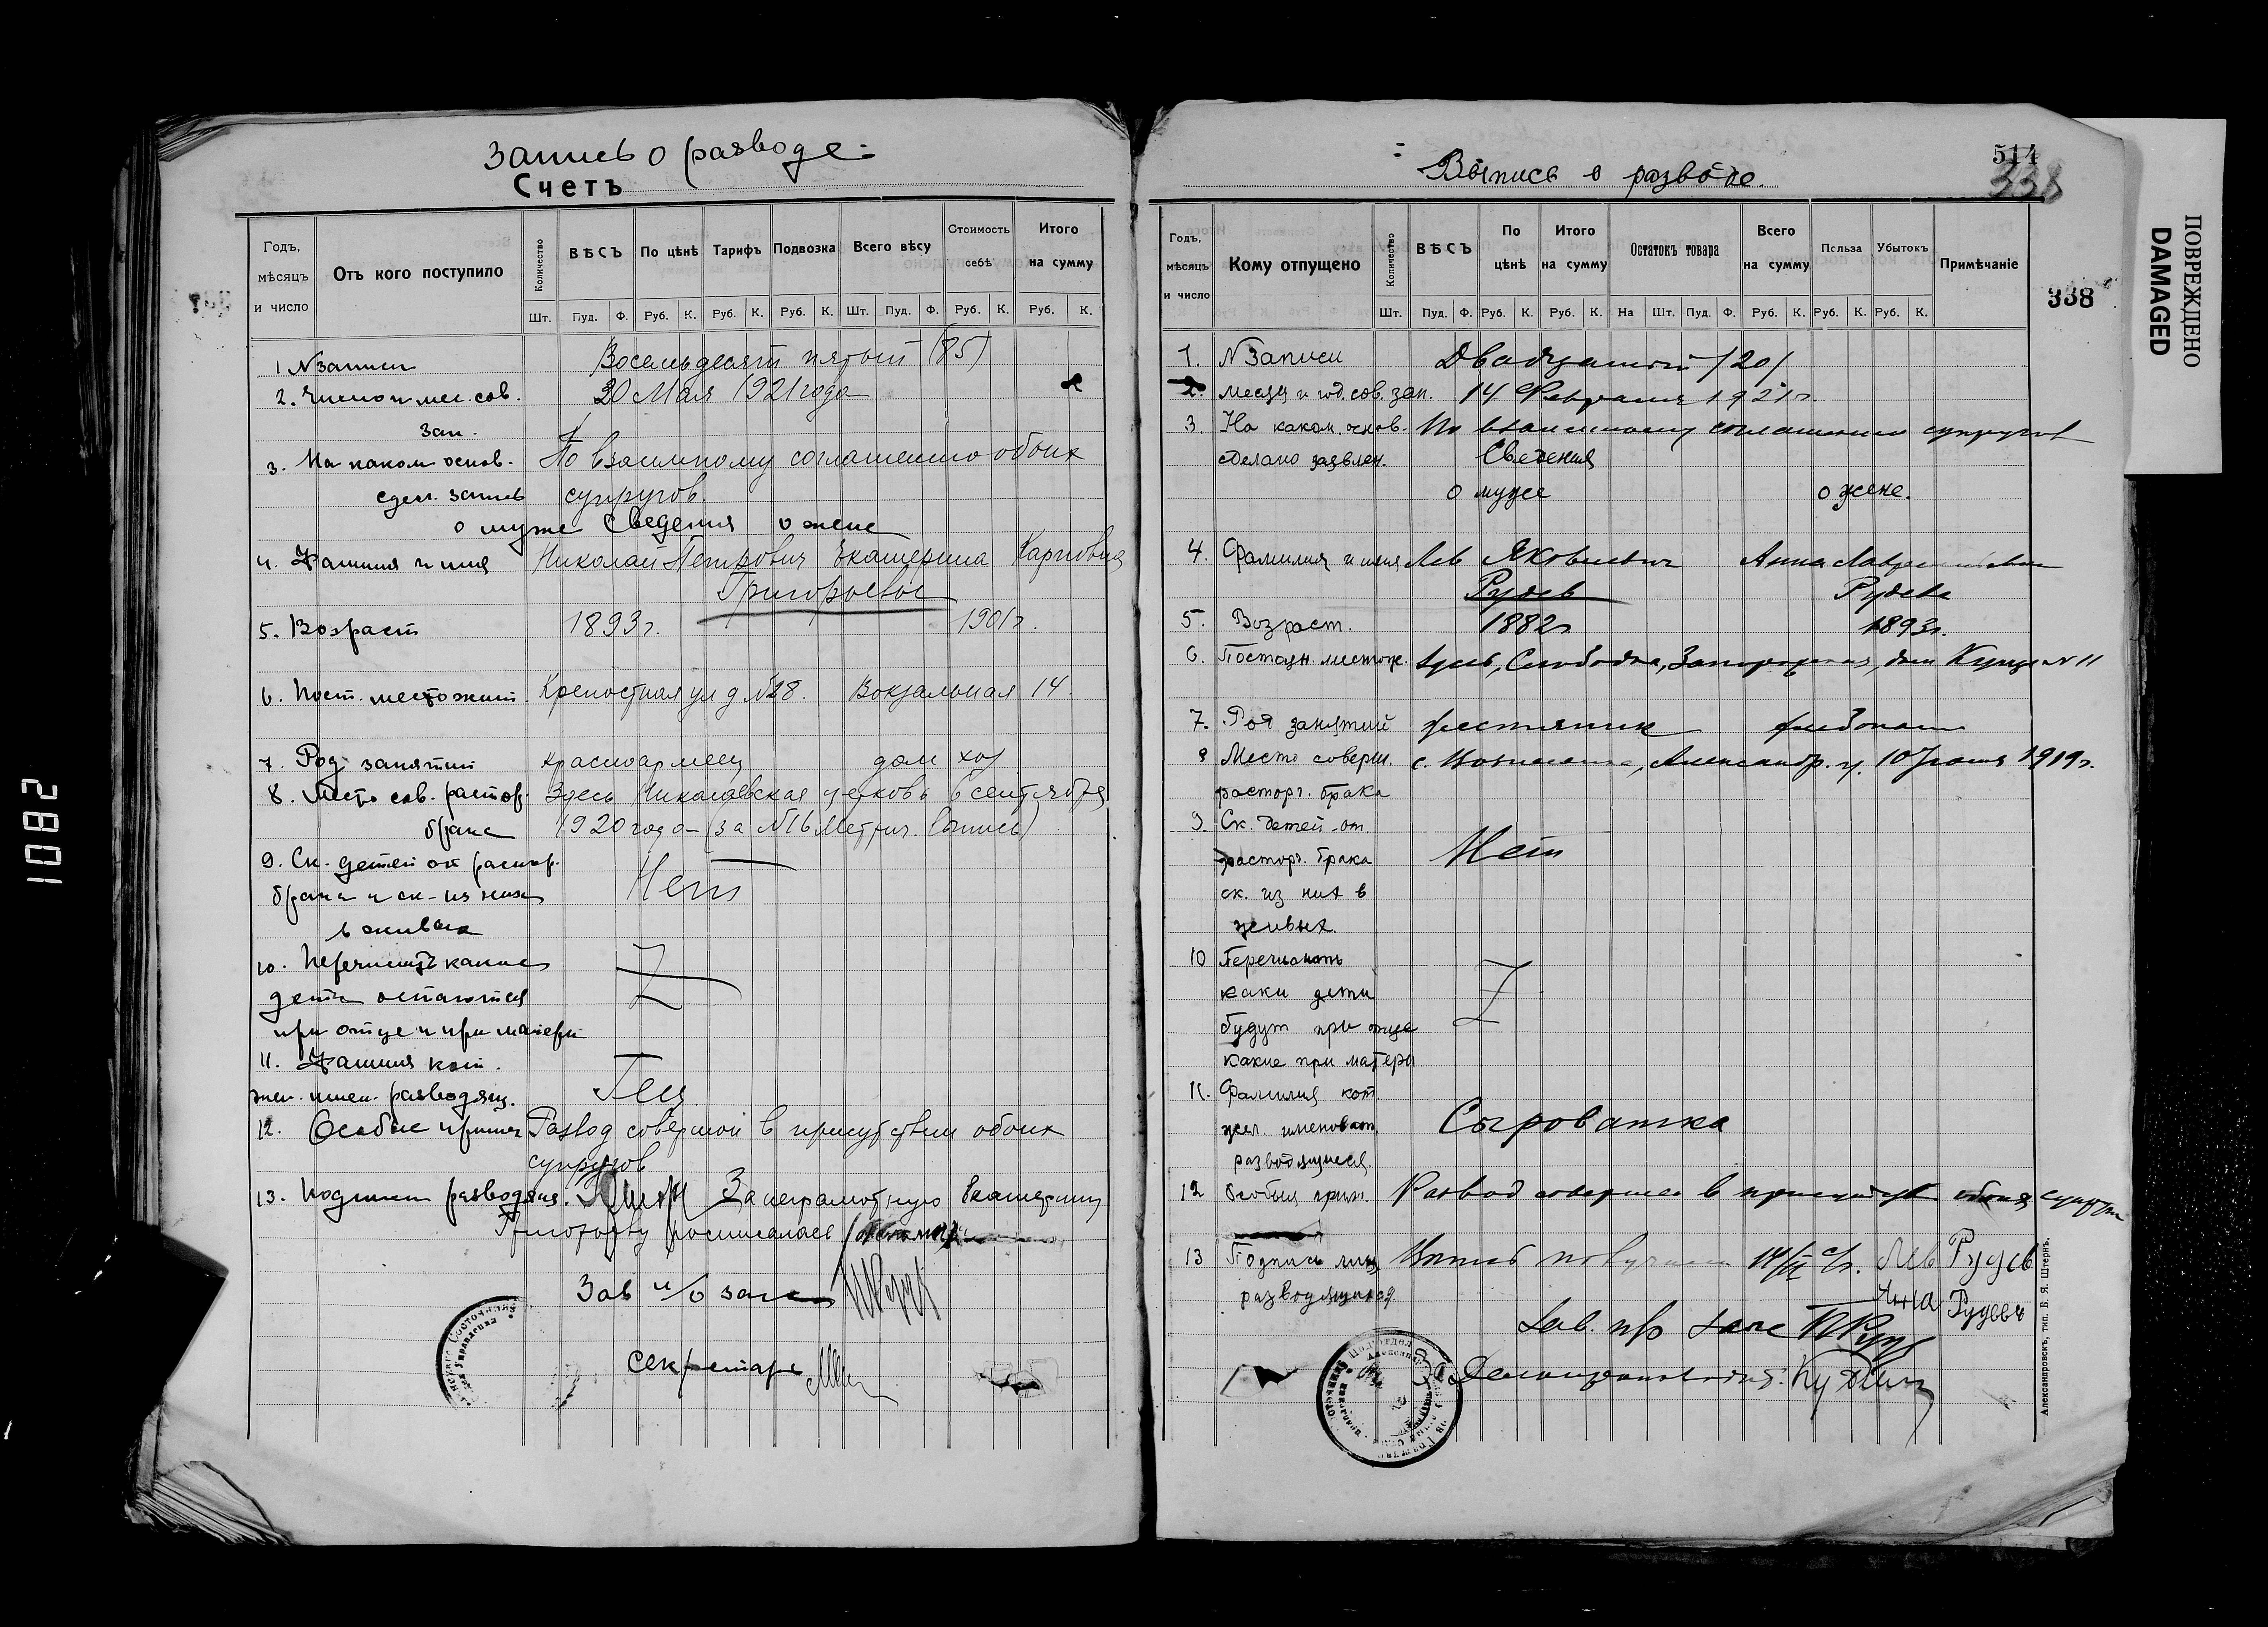 Запись о разводе:
Счетъ
Годъ, мѣсяцъ и число
Отъ кого поступило
Количество
ВѢСЪ
По цѣнѣ
Тарифъ
Подвозка
Всего вѣсу
Стоимость себѣ
Итого на сумму
Шт. Пуд. Ф. Руб. К. Руб. К. Руб. К. Шт. Пуд. Ф. Руб. К. Руб. К.
1 N записи Восемьдесят пятый (85)
2. Число и мес. сов. 20 Мая 1921 года
зап.
3. На каком основ. По взаимному соглашению обоих
сдел. запись супругов.
о муже Сведения о жене
4. Фамилия и имя Николай Петрович Екатерина Карповна
Григорьевы
5. Возраст 1893г. 1901г.
6. Пост. местожит. Крепостная ул д N28. Вокзальная 14.
7. Род занятий красноармеец дом хоз
8. Место сов. растор. Здесь Николаевская церковь 6 сентября
брака 1920 года (за N16 Метрич.
9. Ск. детей от растор. Нет
брака и ск. из них
в живых
10. Перечислить какие Z
дети остаются
при отце и при матери
11. Фамилия кот.
жел. имен. разводящ.
12. Особые примеч Развод совершон в присутствии обоих
супругов
13. Подписи разводящ. За неграмотную Екатерину
Григорьеву росписалась
Зав п/о
Секретарь
: Выпись о разводе.
514
338
Годъ, мѣсяцъ и число
Кому отпущено
Количество
ВѢСЪ
По цѣнѣ
Итого на сумму
Остатокъ товара
Всего на сумму
Польза
Убытокъ
Примѣчаніе
Шт. Пуд. Ф. Руб. К. Руб. К. На Шт. Пуд. Ф. Руб. К. Руб. К. Руб. К.
338
1. N записи Двадцатый /20/
2. месяц и год. сов. зап. 14 Февраля 1921г.
3. На каком. основ. По взаимному соглашению супругов
сделано заявлен. Сведения
о муже о жене.
4. Фамилия и имя Лев Яковлевич Анна
Рудев Рудева
5. Возраст. 1882г 1893г.
6. Постоян. местож. Здесь, Слободка, дом N 11
7. Род занятий
8 Место соверш. с. Александр. у. 1919г.
расторг. брака
9. Ск. детей от Нет
расторг. брака
ск. из них в
живых.
10 Перечислить Z
каки дети
будут при отце
какие при матери
11. Фамилия кот. Сыроватка
жел. именоват.
разводящиеся.
12 Особыя прим. Развод совершен в обоих супругов
13 Подпись лиц 14/II Лев Рудев
разводящихся Анна Рудева
Зав. п/о
Делопроизводит.
Александровскъ, тип. Б. Я. Штернъ.
ПОВРЕЖДЕНО
DAMAGED
1082